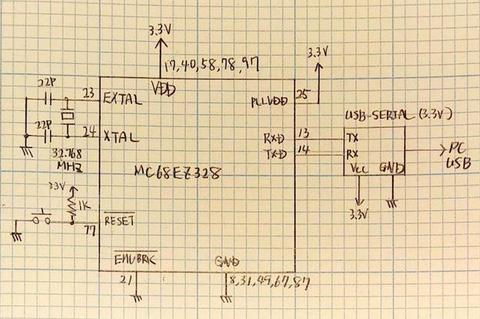 3.3V
17,40,58,78,97
3.3V
22P
23
EXTAL
VDD
PLLVDD
25
USB-SERIAL (3.3V)
22P
24
XTAL
RXD
13
TX
TXD
14
RX
PC
USB
32.768
MHZ
MC68EZ328
VCC
GND
3.3V
1K
3.3V
RESET
77
EMUBRK
GND
21
8,31,49,67,87